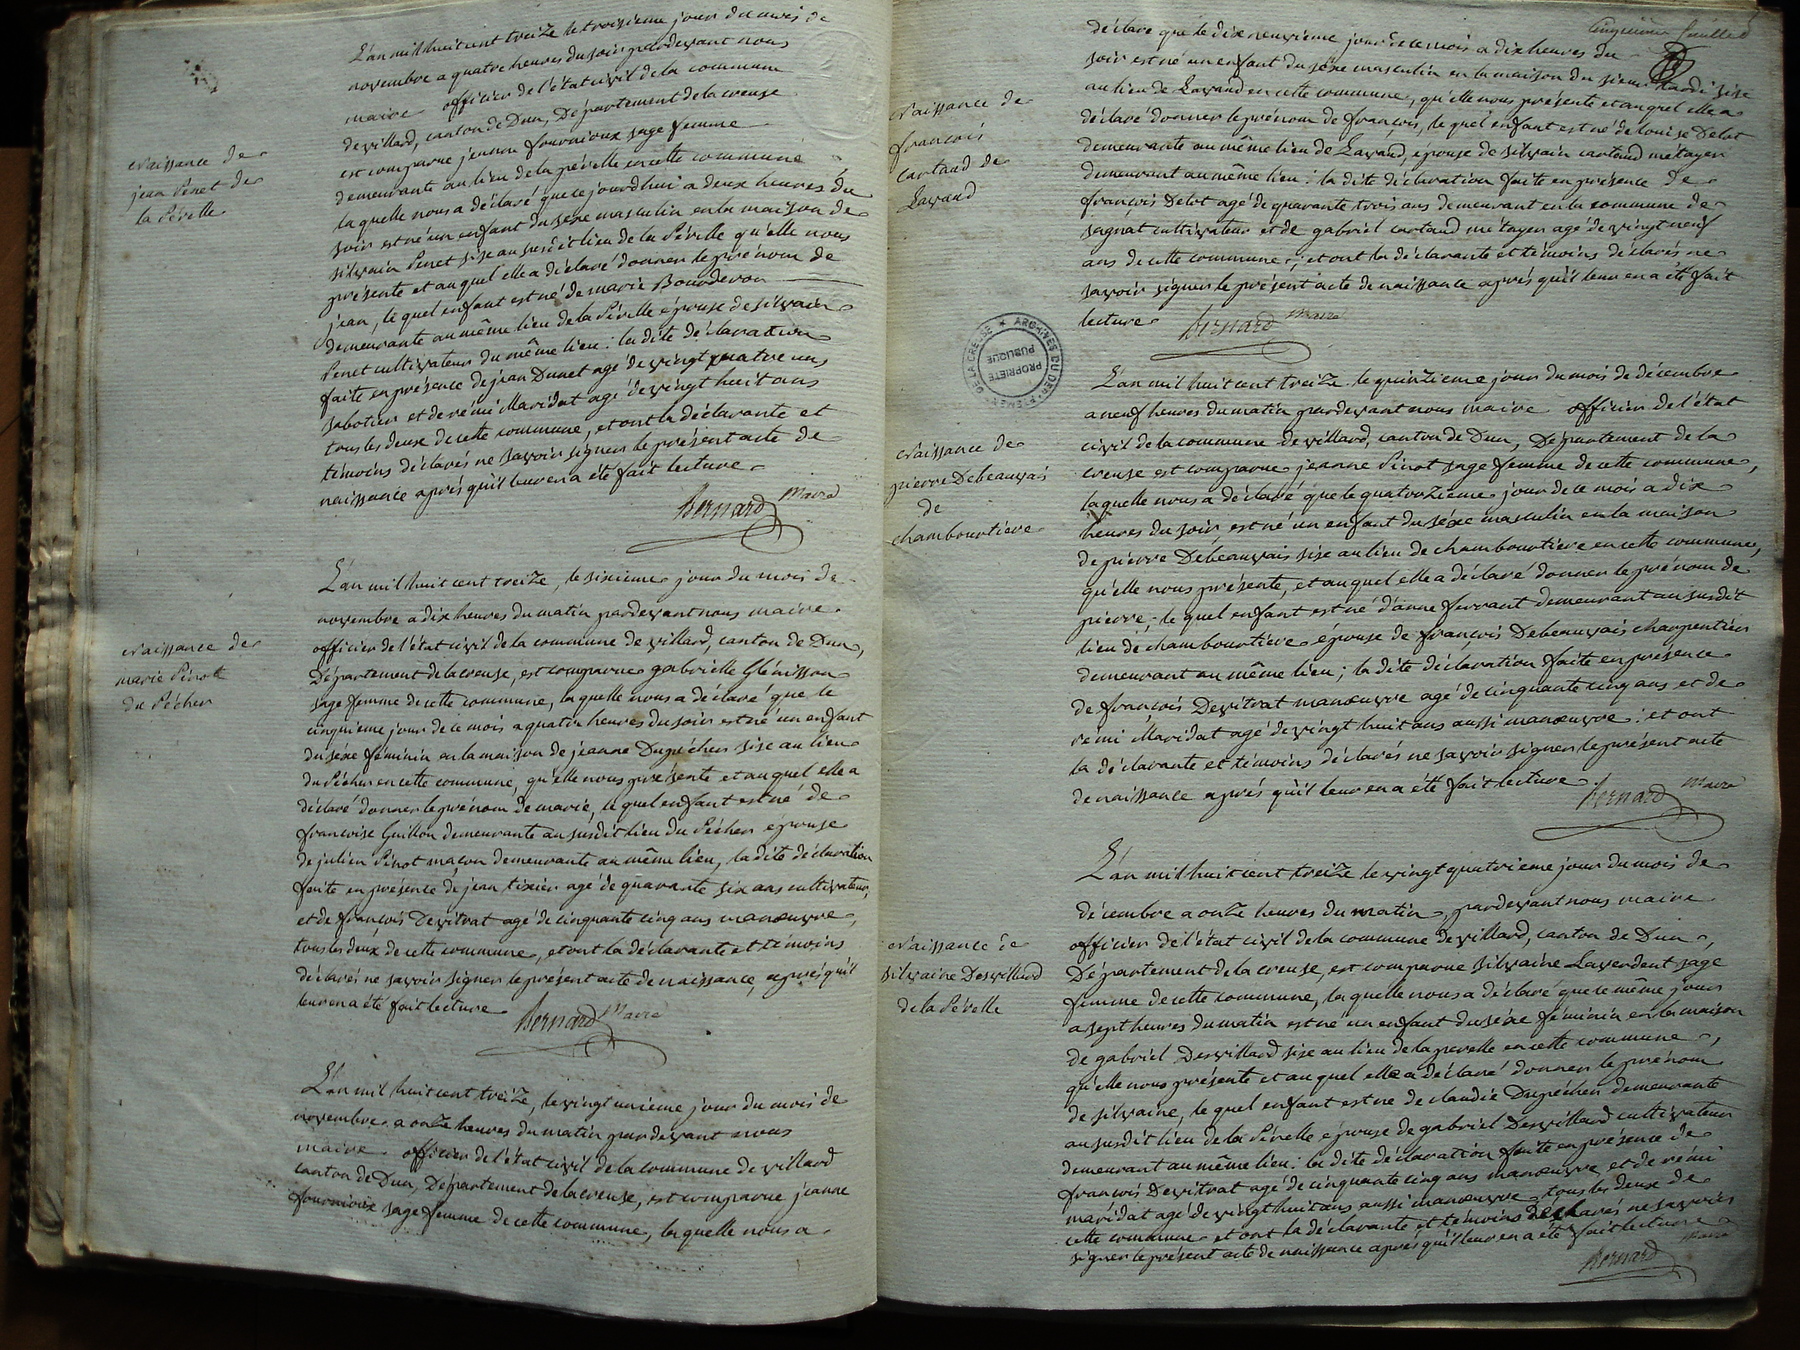 L'an mil huit cent treize le troisieme jour du mois de
novembre a quatre heures du soir pardevant nous
maire officier de l'état civil de la commune
de villard, canton de Dun, Département de la creuse
est comparue jeanne fournioux sage femme
demeurante au lieu de la pérelle en cette commune
la quelle nous a déclaré que ce jourd'hui a deux heures du
soir est né un enfant du séxe masculin en la maison de
silvain Penet sise au susdit lieu de la Pérelle qu'elle nous
présente et au quel elle a déclaré donner le prénom de
jean, le quel enfant est né de marie Bourderon
demeurante au même lieu de la Pérelle épouse de silvain
Penet cultivateur du même lieu : la dite déclaration
faite en présence de jean Dunet agé de vingt quatre ans
sabotier et de rémi Maridat agé de vingt huit ans
tous les deux de cette commune, et ont la déclarante et
témoins déclarés ne savoir signer le présent acte de
naissance après qu'il leur en a été fait lecture
Bernard Maire
Naissance de
jean Penet de
la Pérelle
L'an mil huit cent treize, le sixieme jour du mois de
novembre a dix heures du matin pardevant nous maire
officier de l'état civil de la commune de villard, canton de Dun,
Département de la creuse, est comparue gabrielle Glénisson
sage femme de cette commune, la quelle nous a déclaré que le
cinquieme jour de ce mois a quatre heures du soir est né un enfant
du séxe féminin en la maison de jeanne Dupécher sise au lieu
du Pécher en cette commune, qu'elle nous présente et au quel elle a
déclaré donner le prénom de marie, le quel enfant est né de
françoise Guillon demeurante au susdit lieu du Pécher épouse
de julien Pinot maçon demeurante au même lieu, la dite déclaration
faite en présence de jean tixier agé de quarante six ans cultivateur,
et de françois Devitrat agé de cinquante cinq ans manœuvre,
tous les deux de cette commune, et ont la déclarante et témoins
déclarés ne savoir signer le présent acte de naissance, après qu'il
leur en a été fait lecture
Bernard Maire
Naissance de
marie Pinot
du Pécher
L'an mil huit cent treize, le vingt unieme jour du mois de
novembre a onze heures du matin pardevant nous
maire officier de l'état civil de la commune de villard
canton de Dun, Département de la creuse, est comparue jeanne
fournioux sage femme de cette commune, la quelle nous a
déclaré que le dix neuvieme jour de ce mois a dix heures du
soir est né un enfant du séxe masculin en la maison du sieur tardi sise
au lieu de Lavaud en cette commune, qu'elle nous présente et au quel elle a
déclaré donner le prénom de françois, le quel enfant est né de louise Delot
demeurante au même lieu de Lavaud, épouse de silvain cartaud métayer
demeurant au même lieu : la dite déclaration faite en présence de
françois Delot agé de quarante trois ans demeurant en la commune de
sagnat cultivateur et de gabriel cartaud métayer agé de vingt neuf
ans de cette commune ; et ont la déclarante et témoins déclarés ne
savoir signer le présent acte de naissance après qu'il leur en a été fait
lecture
Bernard Maire
Naissance de
françois
cartaud de
Lavaud
ARCHIVES DU DEPARTEMENT DE LA CREUSE
PROPRIETE
PUBLIQUE
L'an mil huit cent treize le quinzieme jour du mois de décembre
a neuf heures du matin pardevant nous maire officier de l'état
civil de la commune de villard, canton de Dun, Département de la
creuse est comparue jeanne Pinot sage femme de cette commune,
laquelle nous a déclaré que le quatorzieme jour de ce mois a dix
heures du soir, est né un enfant du séxe masculin en la maison
de pierre Debeauvais sise au lieu de chambourtiere en cette commune,
qu'elle nous présente, et au quel elle a déclaré donner le prénom de
pierre, le quel enfant est né d'anne ferrant demeurant au susdit
lieu de chambourtiere épouse de françois Debeauvais charpentier
demeurant au même lieu ; la dite déclaration faite en présence
de françois Devitrat manœuvre agé de cinquante cinq ans et de
rémi Maridat agé de vingt huit ans aussi manœuvre : et ont
la déclarante et témoins déclarés ne savoir signer le présent acte
de naissance après qu'il leur en a été fait lecture
Bernard Maire
Naissance de
pierre Debeauvais
de
chambourtiere
L'an mil huit cent treize le vingt quatrieme jour du mois de
décembre a onze heures du matin, pardevant nous maire
officier de l'état civil de la commune de villard, canton de Dun,
Département de la creuse, est comparue silvaine Laverdent sage
femme de cette commune, la quelle nous a déclaré que ce même jour
a sept heures du matin est né un enfant du séxe féminin en la maison
de gabriel Desvillard sise au lieu de la perelle en cette commune,
qu'elle nous présente et au quel elle a déclaré donner le prénom
de silvaine, le quel enfant est né de claudie Dupécher demeurante
au susdit lieu de la Pérelle épouse de gabriel Desvillard cultivateur
demeurant au même lieu : la dite déclaration faite en présence de
françois Devitrat agé de cinquante cinq ans manœuvre et de rémi
maridat agé de vingt huit ans aussi manœuvre tous les deux de
cette commune et ont la déclarante et témoins déclarés ne savoir
signer le présent acte de naissance après qu'il leur en a été fait lecture
Bernard Maire
Naissance de
silvaine Desvillard
de la Pérelle